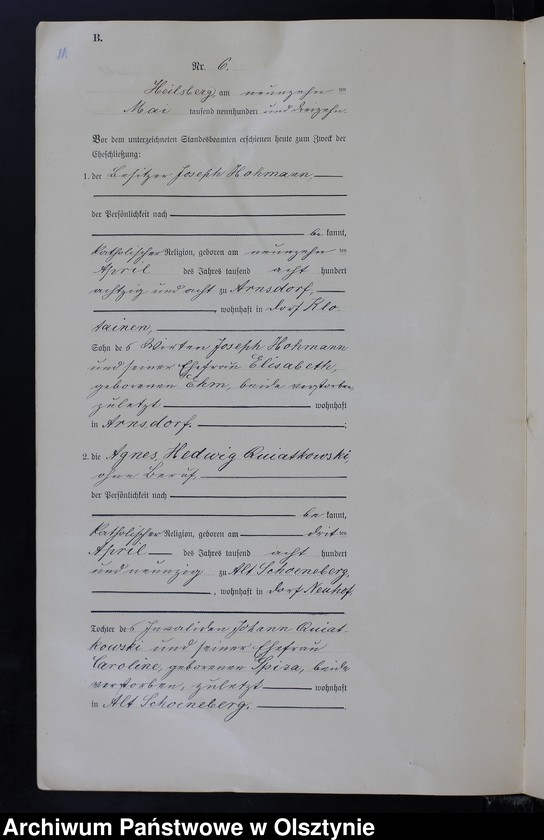 B.
Nr. 6.
Heilsberg, am neunzehn ten
Mai tausend neunhundert und dreizehn.
Vor dem unterzeichneten Standesbeamten erschienen heute zum Zweck der
Eheschließung:
1. der Besitzer Joseph Hohmann,
der Persönlichkeit nach
be kannt,
katholischer Religion, geboren am neunzehn ten
April des Jahres tausend acht hundert
achtzig und acht zu Arnsdorf,
, wohnhaft in Dorf Klo-
tainen,
Sohn des Wirten Joseph Hohmann
und seiner Ehefrau Elisabeth,
geborenen Ehm, beide verstorben,
zuletzt wohnhaft
in Arnsdorf. ;
2. die Agnes Hedwig Kwiatkowski,
ohne Beruf,
der Persönlichkeit nach
be kannt,
katholischer Religion, geboren am drit ten
April des Jahres tausend acht hundert
und neunzig zu Alt Schoeneberg,
, wohnhaft in Dorf Neuhof,
Tochter des Invaliden Johann Kwiat-
kowski und seiner Ehefrau
Caroline, geborenen Spiza, beide
verstorben, zuletzt wohnhaft
in Alt Schoeneberg.
Archiwum Państwowe w Olsztynie